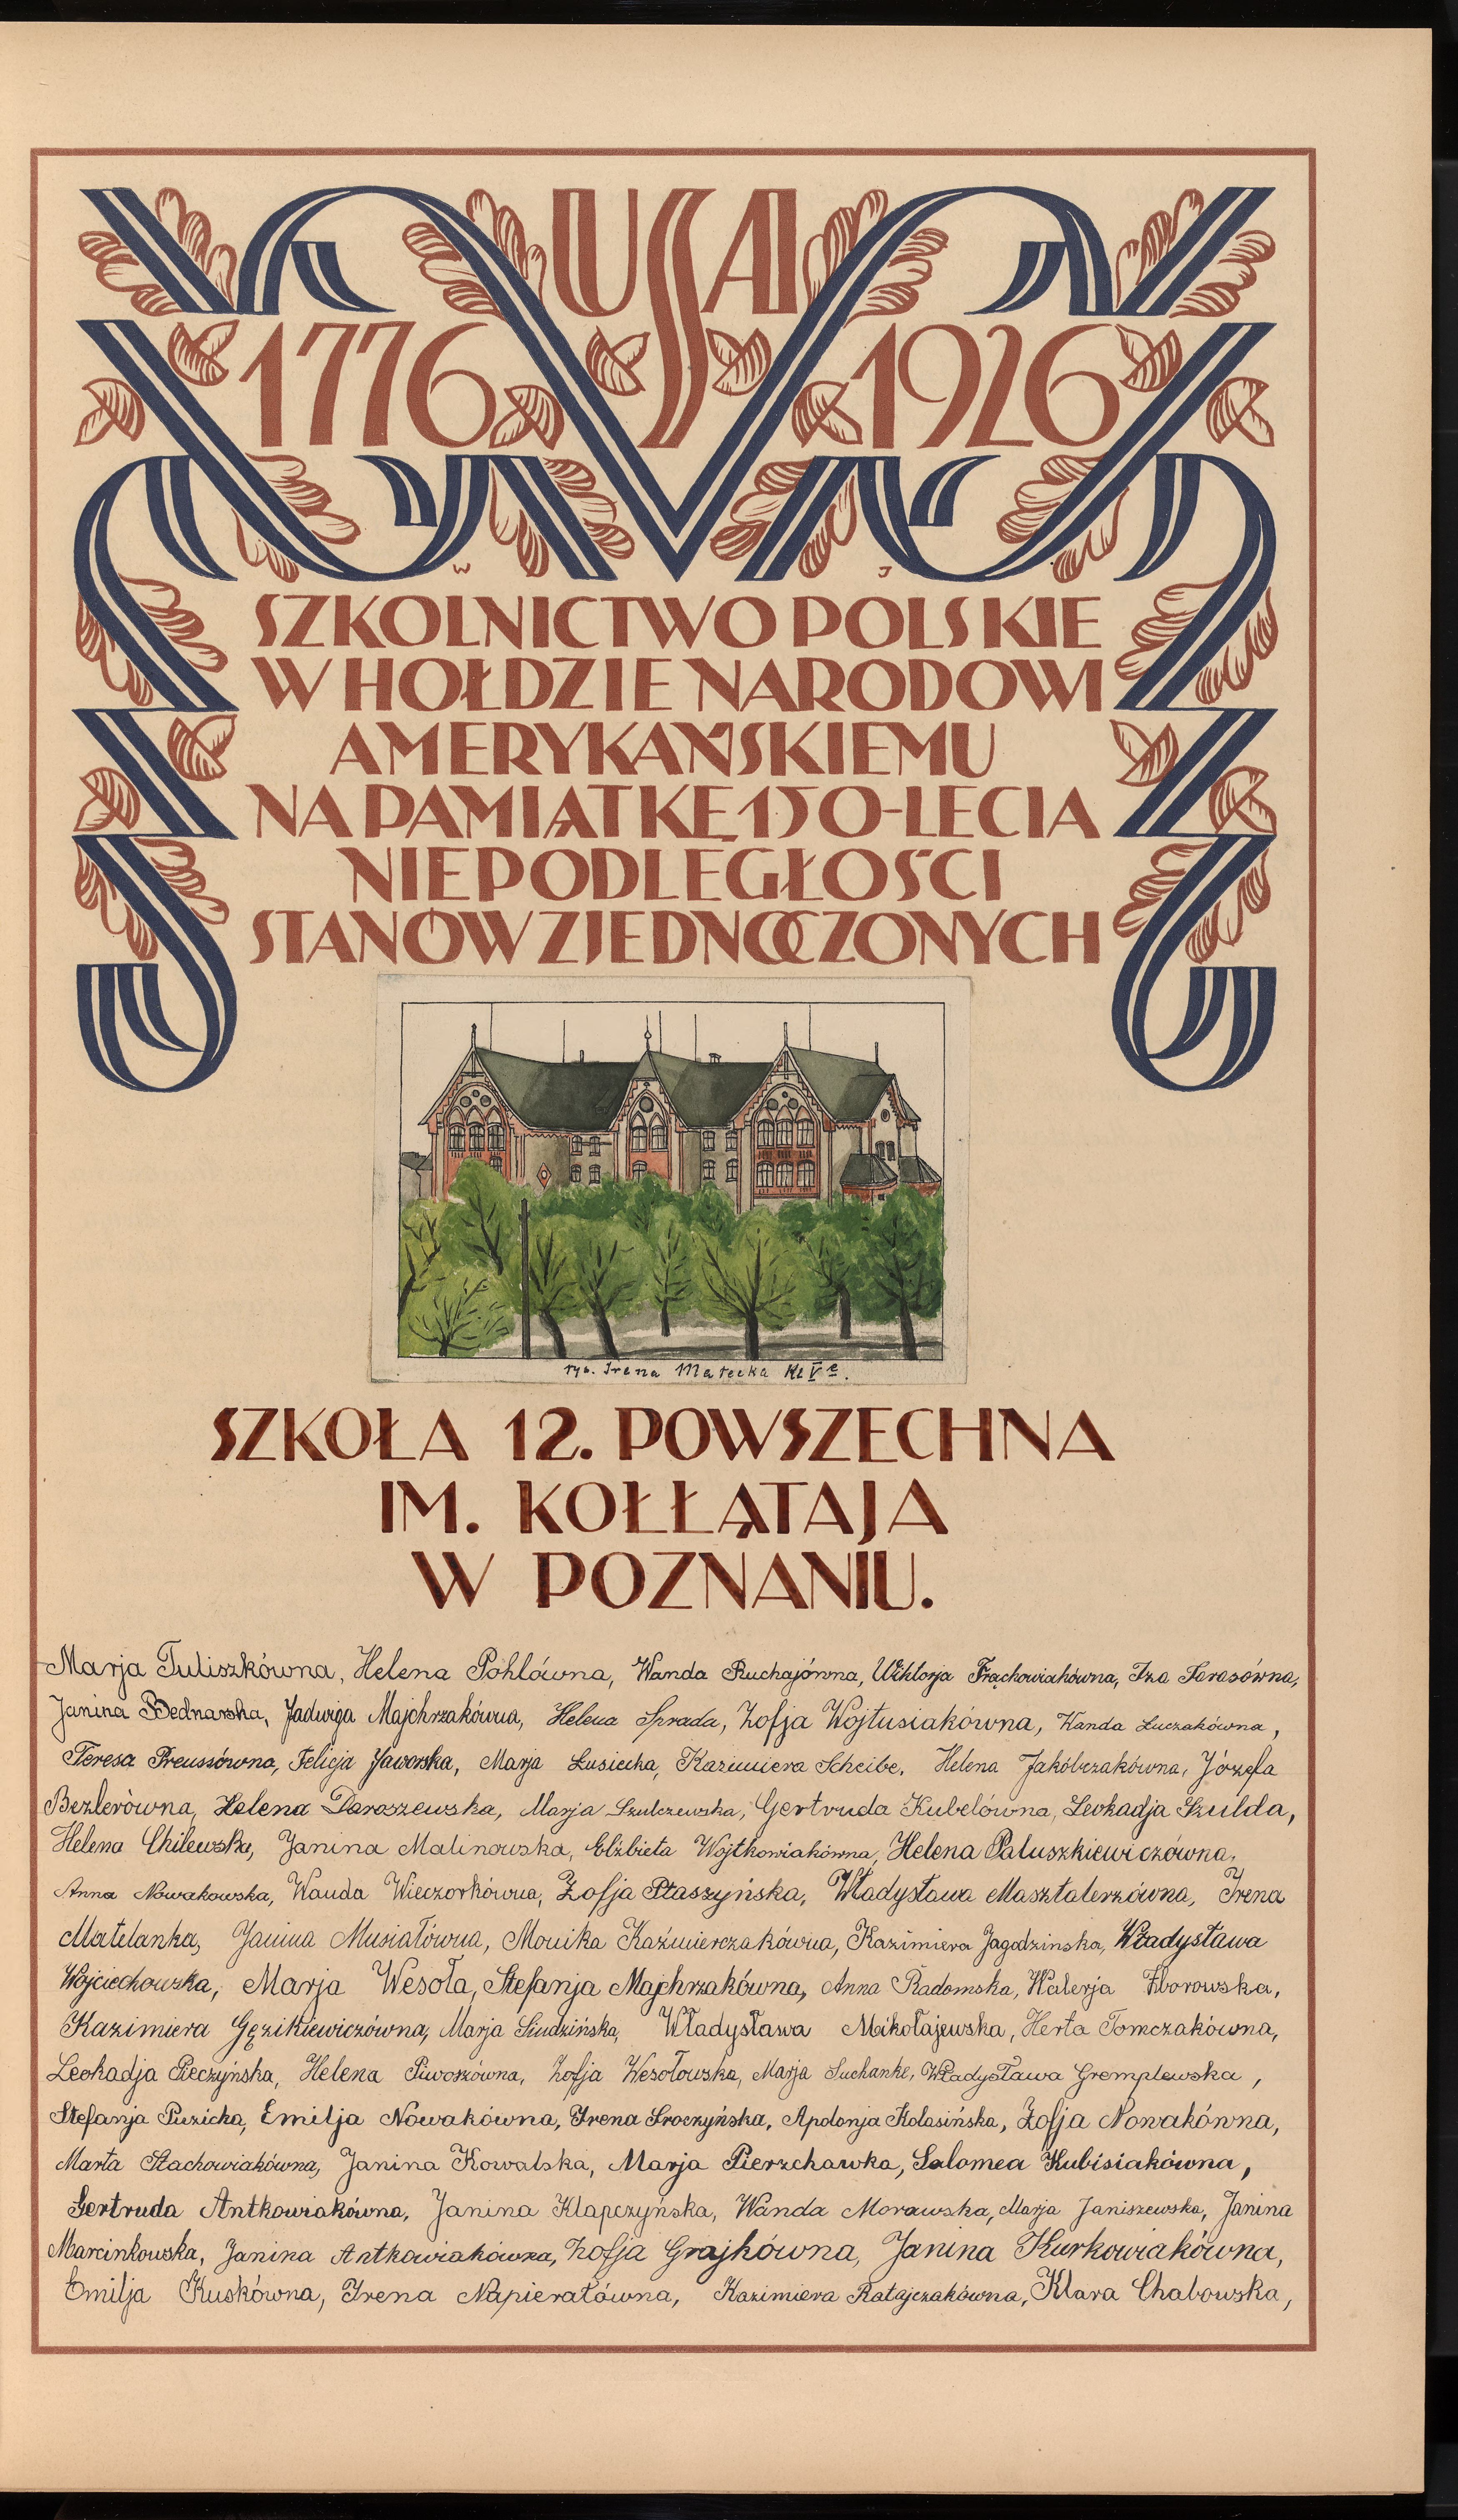 USA
1776 1926
W J
SZKOLNICTWO POLSKIE
W HOŁDZIE NARODOWI
AMERYKAŃSKIEMU
NA PAMIĄTKĘ 150-LECIA
NIEPODLEGŁOŚCI
STANÓW ZJEDNOCZONYCH
rys. Irena Małecka Kl V e.
SZKOŁA 12. POWSZECHNA
IM. KOŁŁĄTAJA
W POZNANIU.
Marja Tuliszkówna, Helena Pohlówna, Wanda Ruchajówna, Wiktorja Frąchowiakówna, Iza Sarasówna,
Janina Bednarska, Jadwiga Majchrzakówna, Helena Sprada, Zofja Wojtusiakówna, Wanda Łuczakówna,
Teresa Preussówna, Felicja Jaworska, Marja Łusiecka, Kazimiera Scheibe, Helena Jakóbczakówna, Józefa
Bezlerówna, Helena Daroszewska, Marja Szulczewska, Gertruda Kubelówna, Leokadja Szulda,
Helena Chilewska, Janina Malinowska, Elżbieta Wojtkowiakówna, Helena Paluszkiewiczówna,
Anna Nowakowska, Wanda Wieczorkówna, Zofja Ptaszyńska, Władysława Masztalerzówna, Irena
Matelanka, Janina Musiałówna, Monika Kaźmierczakówna, Kazimiera Jagodzinska, Władysława
Wojciechowska, Marja Wesoła, Stefanja Majchrzakówna, Anna Radomska, Walerja Zborowska,
Kazimiera Gęzikiewiczówna, Marja Siudzińska, Władysława Mikołajewska, Herta Tomczakówna,
Leokadja Pieczyńska, Helena Piwoszówna, Zofja Wesołowska, Marja Suchanke, Władysława Gremplewska,
Stefanja Puzicka, Emilja Nowakówna, Irena Sroczyńska, Apolonja Kolasińska, Zofja Nowakówna,
Marta Stachowiakówna, Janina Kowalska, Marja Pierzchawka, Salomea Kubisiakówna,
Gertruda Antkowiakówna, Janina Klapczyńska, Wanda Morawska, Marja Janiszewska, Janina
Marcinkowska, Janina Antkowiakówna, Zofja Grajkówna, Janina Kurkowiakówna,
Emilja Kuskówna, Irena Napierałówna, Kazimiera Ratajczakówna, Klara Chabowska,